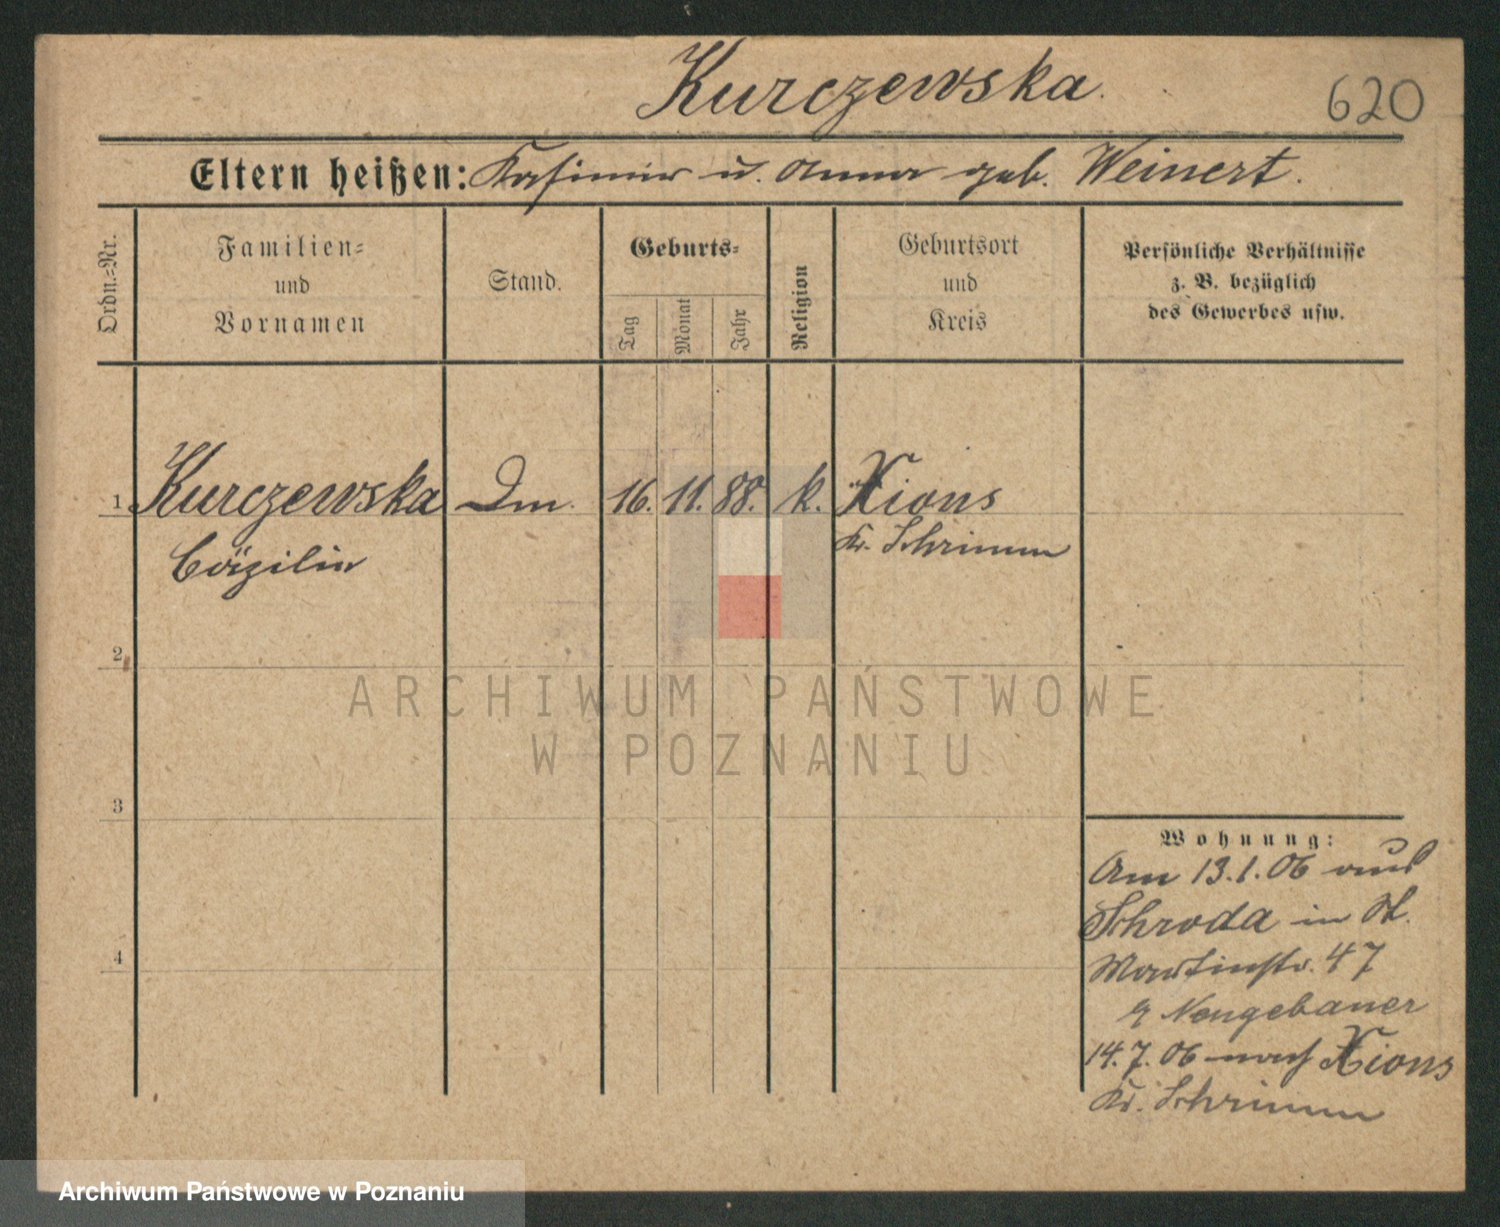 Kurczewska.
620
Eltern heißen: Kasimir u. Anna geb. Weinert.
Ordn.-Nr.
Familien-
und
Vornamen
Stand.
Geburts-
Tag
Monat
Jahr
Religion
Geburtsort
und
Kreis
Persönliche Verhältnisse
z. B. bezüglich
des Gewerbes usw.
1 Kurczewska Dm. 16. 11. 88. k. Xions
Cäzilie Kr. Schrimm
2
3
4
Wohnung:
Am 13.1.06 aus
Schroda in St.
Martinstr. 47
Neugebauer
14.7.06 nach Xions
Kr. Schrimm
ARCHIWUM PAŃSTWOWE
W POZNANIU
Archiwum Państwowe w Poznaniu